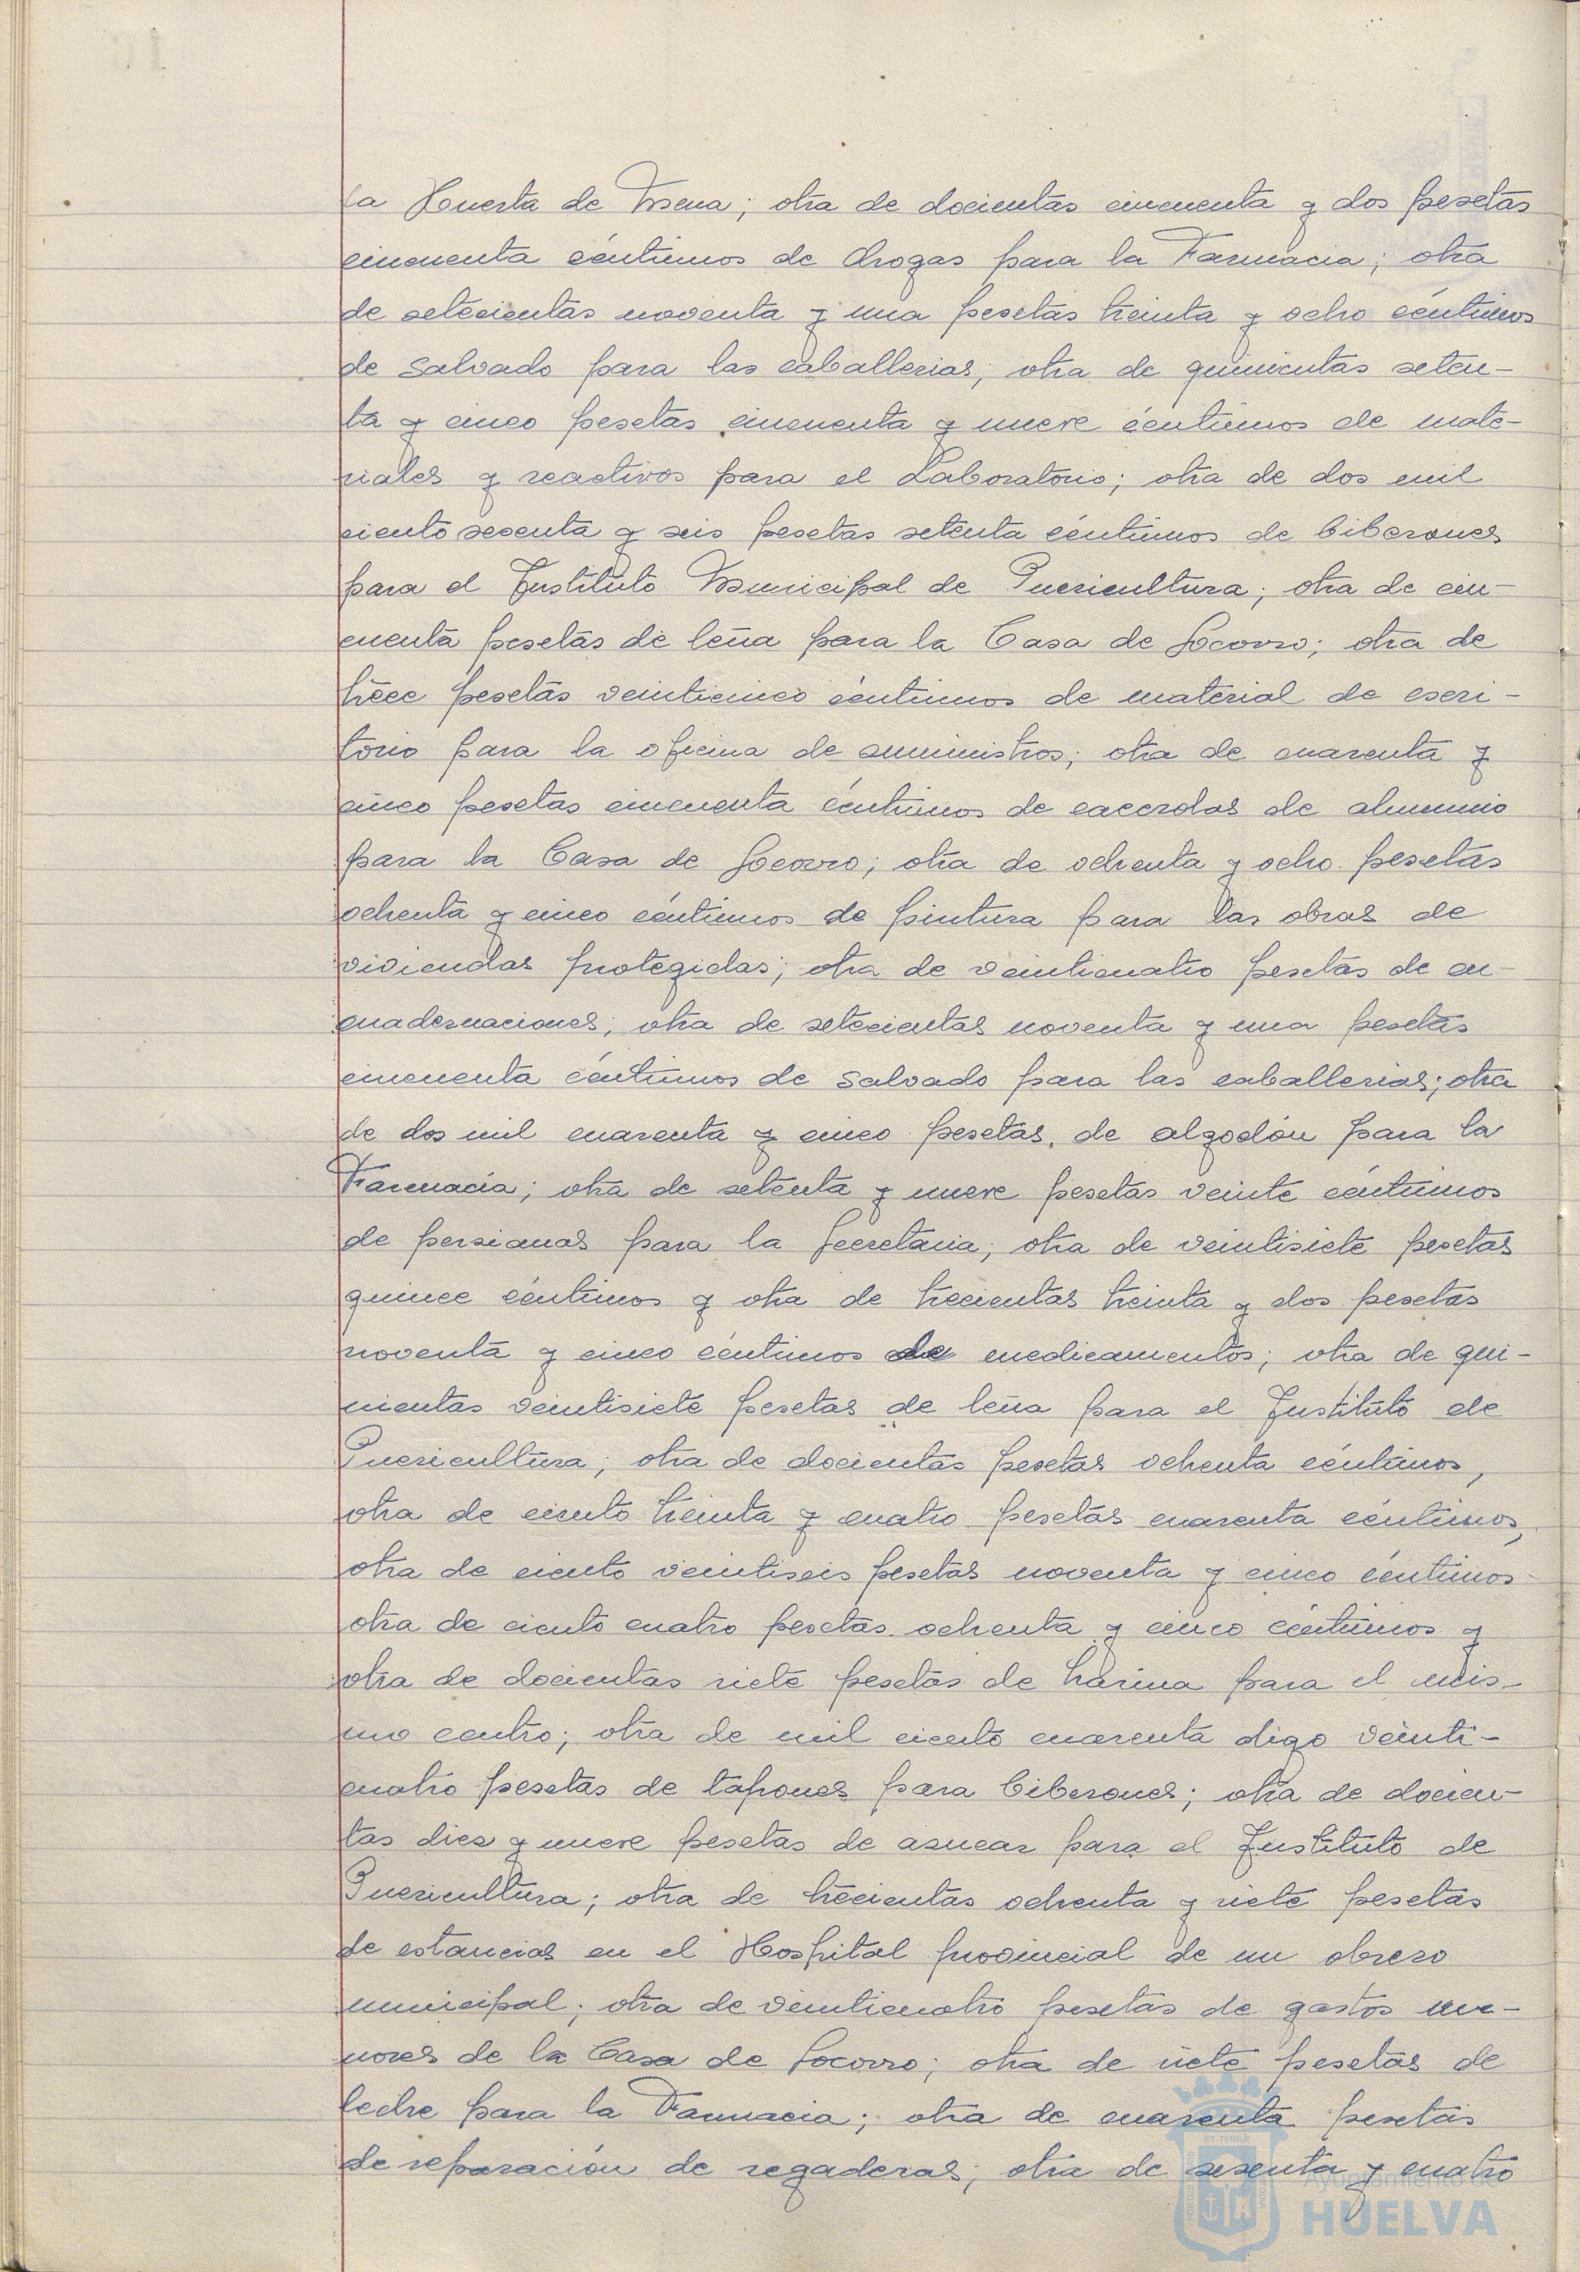 la Huerta de Mena; otra de docientas cincuenta y dos pesetas
cincuenta céntimos de drogas para la Farmacia; otra
de setecientas noventa y una pesetas treinta y ocho céntimos
de salvado para las caballerias; otra de quinientas seten-
ta y cinco pesetas cincuenta y nueve céntimos de mate-
riales y reactivos para el Laboratorio; otra de dos mil
ciento sesenta y seis pesetas setenta céntimos de biberones
para el Instituto Municipal de Puericultura; otra de cin-
cuenta pesetas de leña para la Casa de Socorro; otra de
trece pesetas veinticinco céntimos de material de escri-
torio para la oficina de suministros; otra de cuarenta y
cinco pesetas cincuenta céntimos de cacerolas de aluminio
para la Casa de Socorro; otra de ochenta y ocho pesetas
ochenta y cinco céntimos de pintura para las obras de
viviendas protegidas; otra de veinticuatro pesetas de en-
cuadernaciones; otra de setecientas noventa y una pesetas
cincuenta céntimos de salvado para las caballerias; otra
de dos mil cuarenta y cinco pesetas de algodón para la
Farmacia; otra de setenta y nueve pesetas veinte céntimos
de persianas para la Secretaria; otra de veintisiete pesetas
quince céntimos y otra de trecientas treinta y dos pesetas
noventa y cinco céntimos de medicamentos; otra de qui-
nientas veintisiete pesetas de leña para el Instituto de
Puericultura; otra de docientas pesetas ochenta céntimos,
otra de ciento treinta y cuatro pesetas cuarenta céntimos,
otra de ciento veintiseis pesetas noventa y cinco céntimos
otra de ciento cuatro pesetas ochenta y cinco céntimos y
otra de docientas siete pesetas de harina para el mis-
mo centro; otra de mil ciento cuarenta digo veinti-
cuatro pesetas de tapones para biberones; otra de docien-
tas diez y nueve pesetas de asucar para el Instituto de
Puericultura; otra de trecientas ochenta y siete pesetas
de estancias en el Hospital provincial de un obrero
municipal; otra de veinticuatro pesetas de gastos me-
nores de la Casa de Socorro; otra de siete pesetas de
leche para la Farmacia; otra de cuarenta pesetas
de reparación de regaderas; otra de sesenta y cuatro
Ayuntamiento de
HUELVA